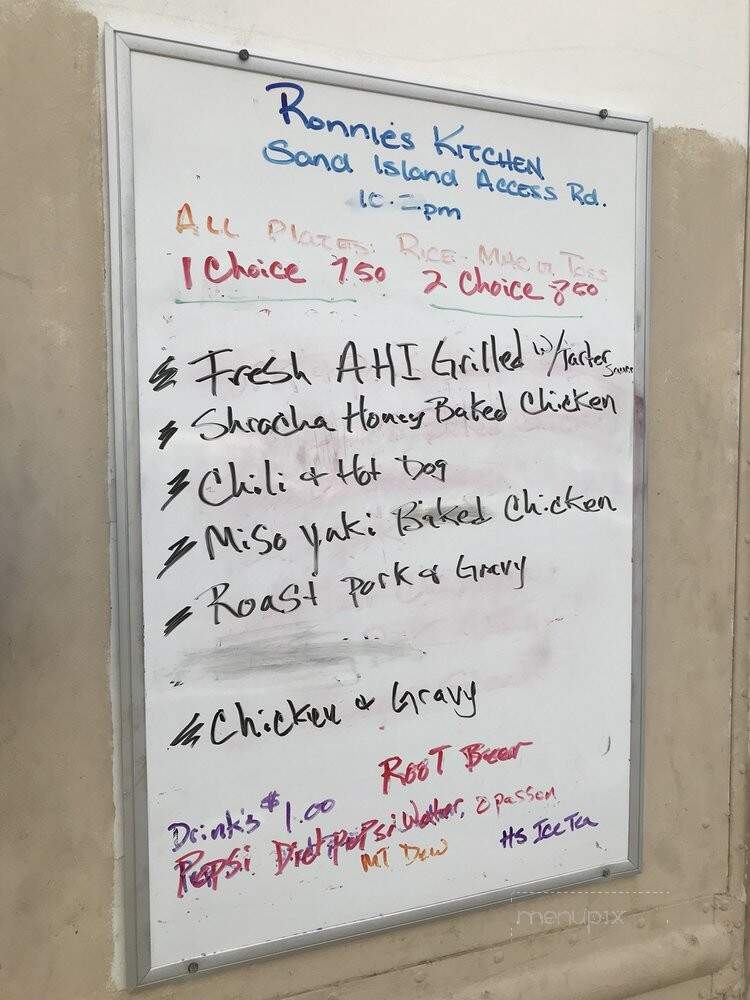 Ronnie's KITCHEN
Sand Island Access Rd.
10-2pm
ALL PLATES: RICE - MAC or Toss
1 Choice 750 2 Choice 850
Fresh AHI Grilled w/Tarter Sauce
Shracha Honey Baked Chicken
Chili & Hot Dog
Miso yaki Baked Chicken
Roast Pork & Gravy
Chicken & Gravy
ROOT Beer
Drinks $1.00
Pepsi Diet Pepsi Water,
MT Dew
Ice Tea
menupix